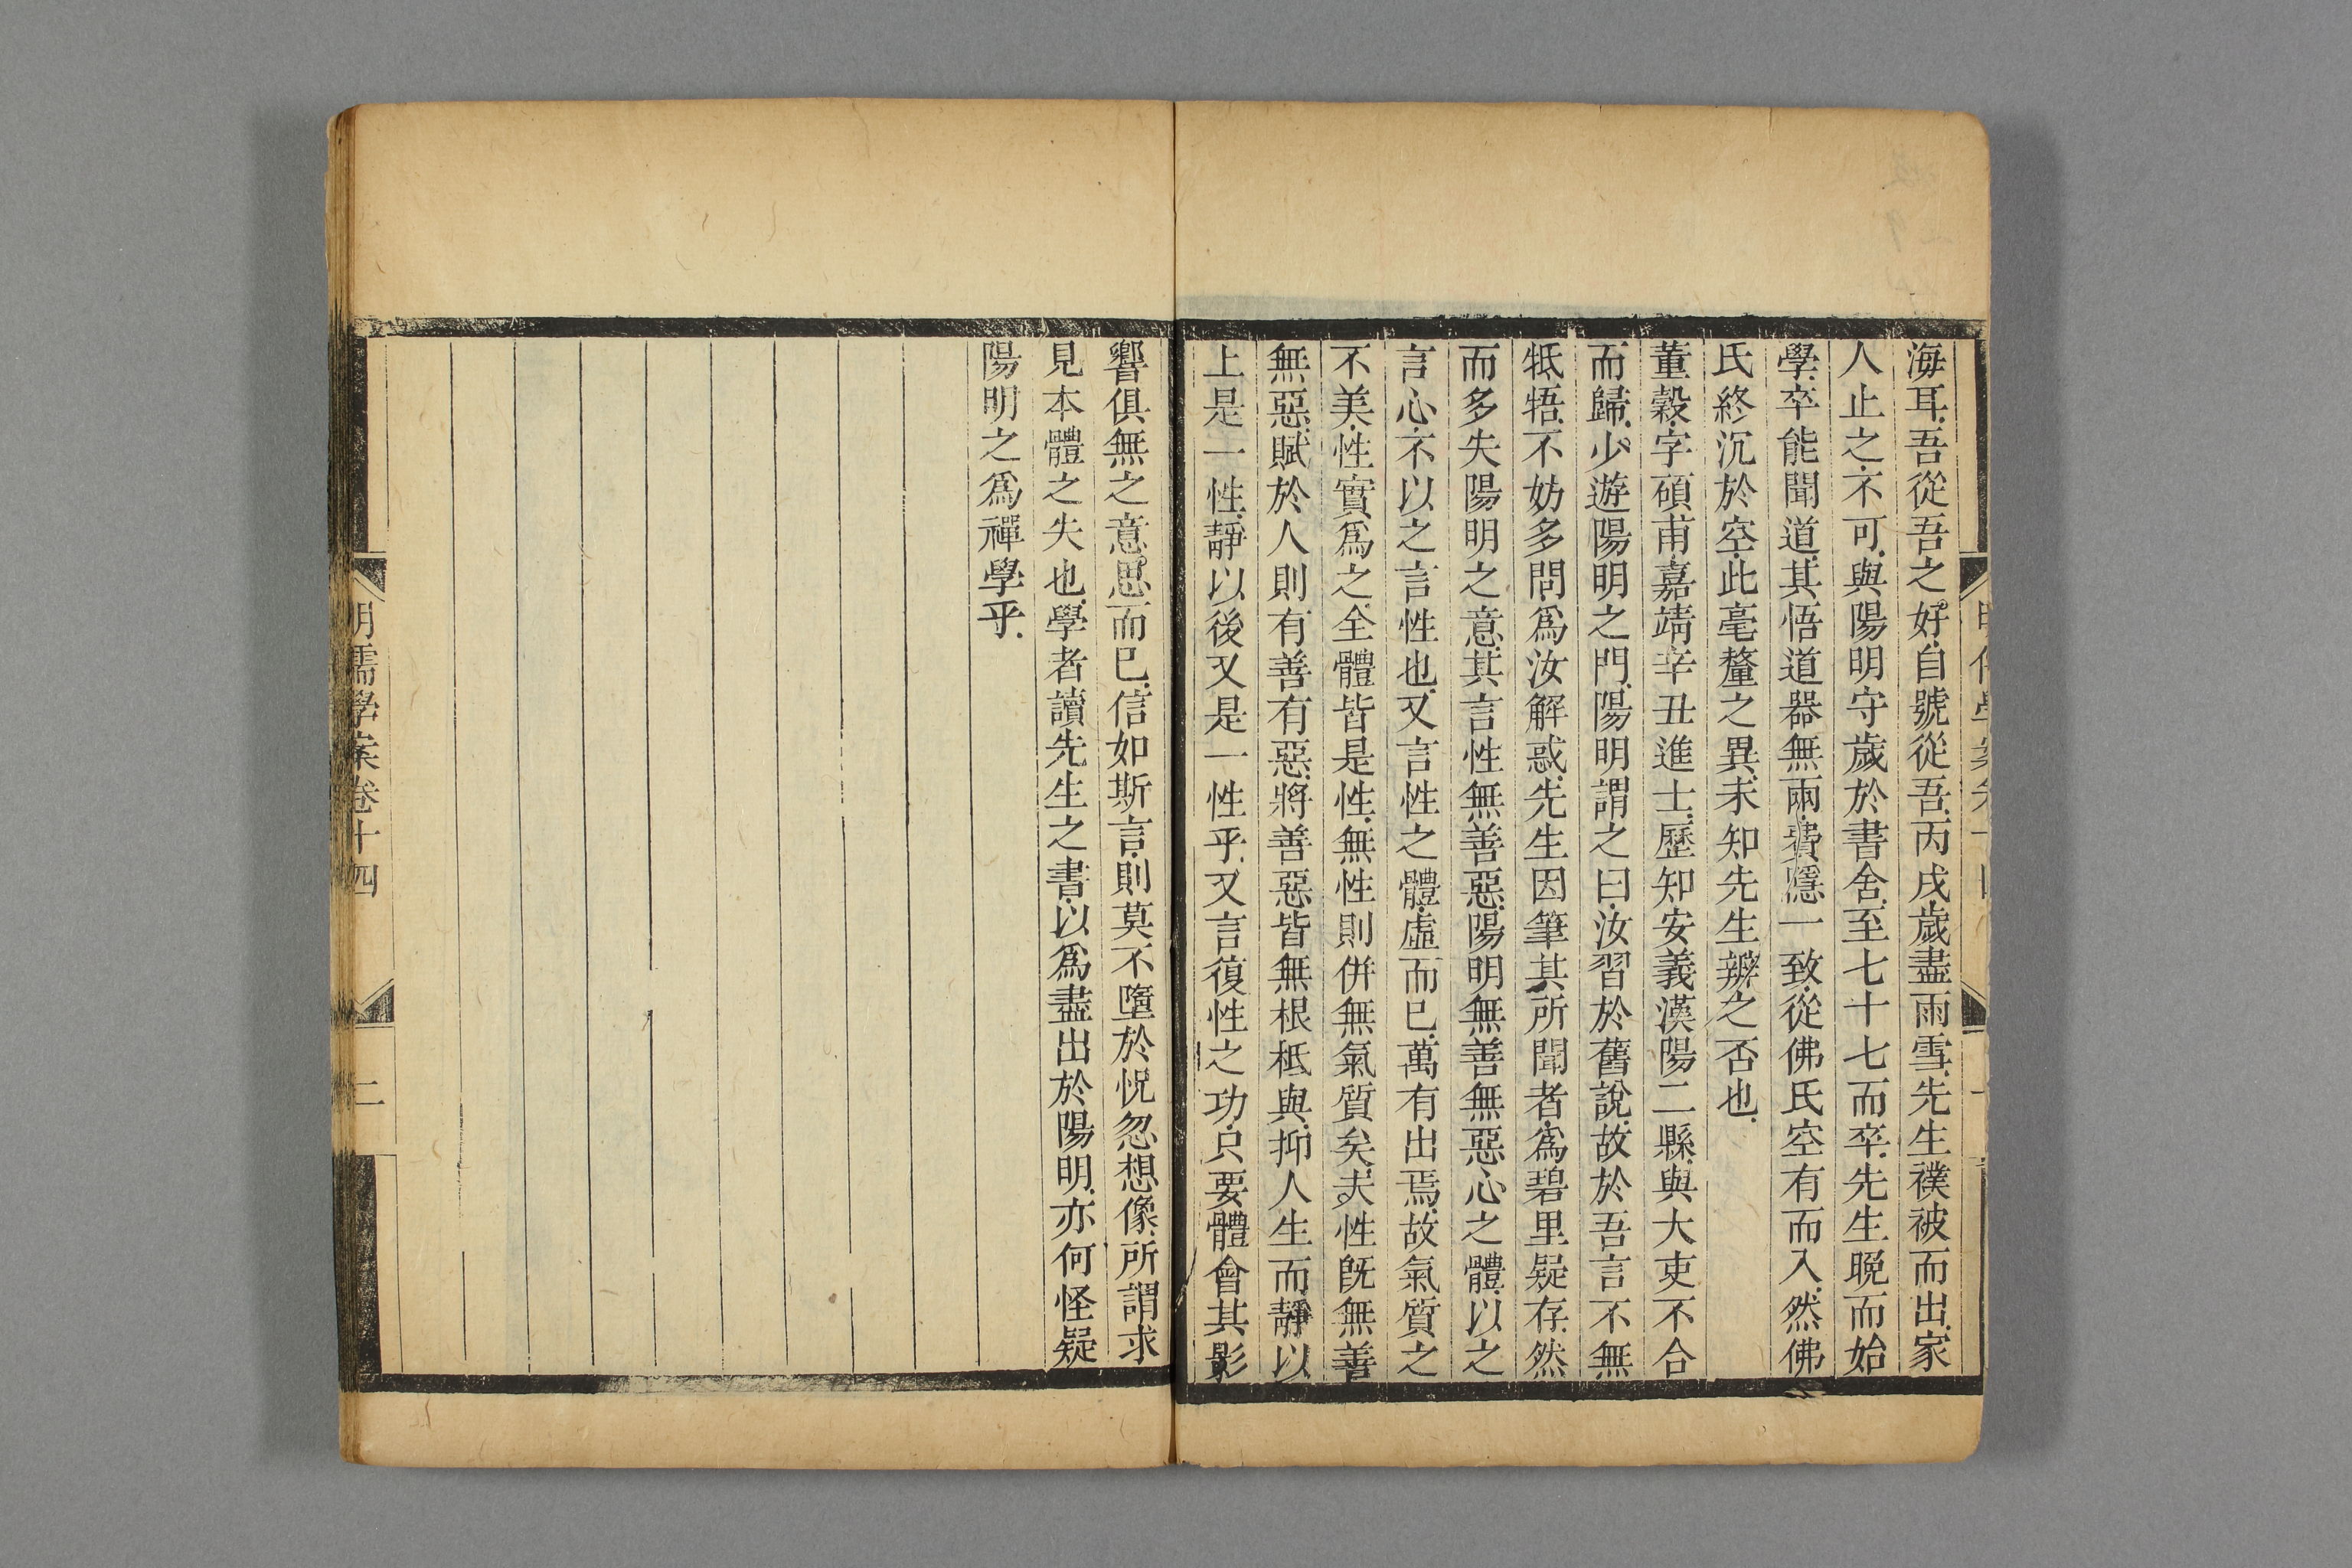 海耳吾從吾之好自號從吾丙戌歲盡雨雪先生襆被而出家
人止之不可與陽明守歲於書舍至七十七而卒先生晚而始
學卒能聞道其悟道器無兩費隱一致從佛氏空有而入然佛
氏終沉於空此毫釐之異未知先生辨之否也
董穀字碩甫嘉靖辛丑進士歷知安義漢陽二縣與大吏不合
而歸少遊陽明之門陽明謂之曰汝習於舊說故於吾言不無
牴牾不妨多問爲汝解惑先生因筆其所聞者爲碧里疑存然
而多失陽明之意其言性無善惡陽明無善無惡心之體以之
言心不以之言性也又言性之體虛而已萬有出焉故氣質之
不美性實爲之全體皆是性無性則併無氣質矣夫性旣無善
無惡賦於人則有善有惡將善惡皆無根柢與抑人生而靜以
上是一性靜以後又是一性乎又言復性之功只要體會其影
響俱無之意思而已信如斯言則莫不墮於怳忽想像所謂求
見本體之失也學者讀先生之書以爲盡出於陽明亦何怪疑
陽明之爲禪學乎
明儒學案卷十四
二